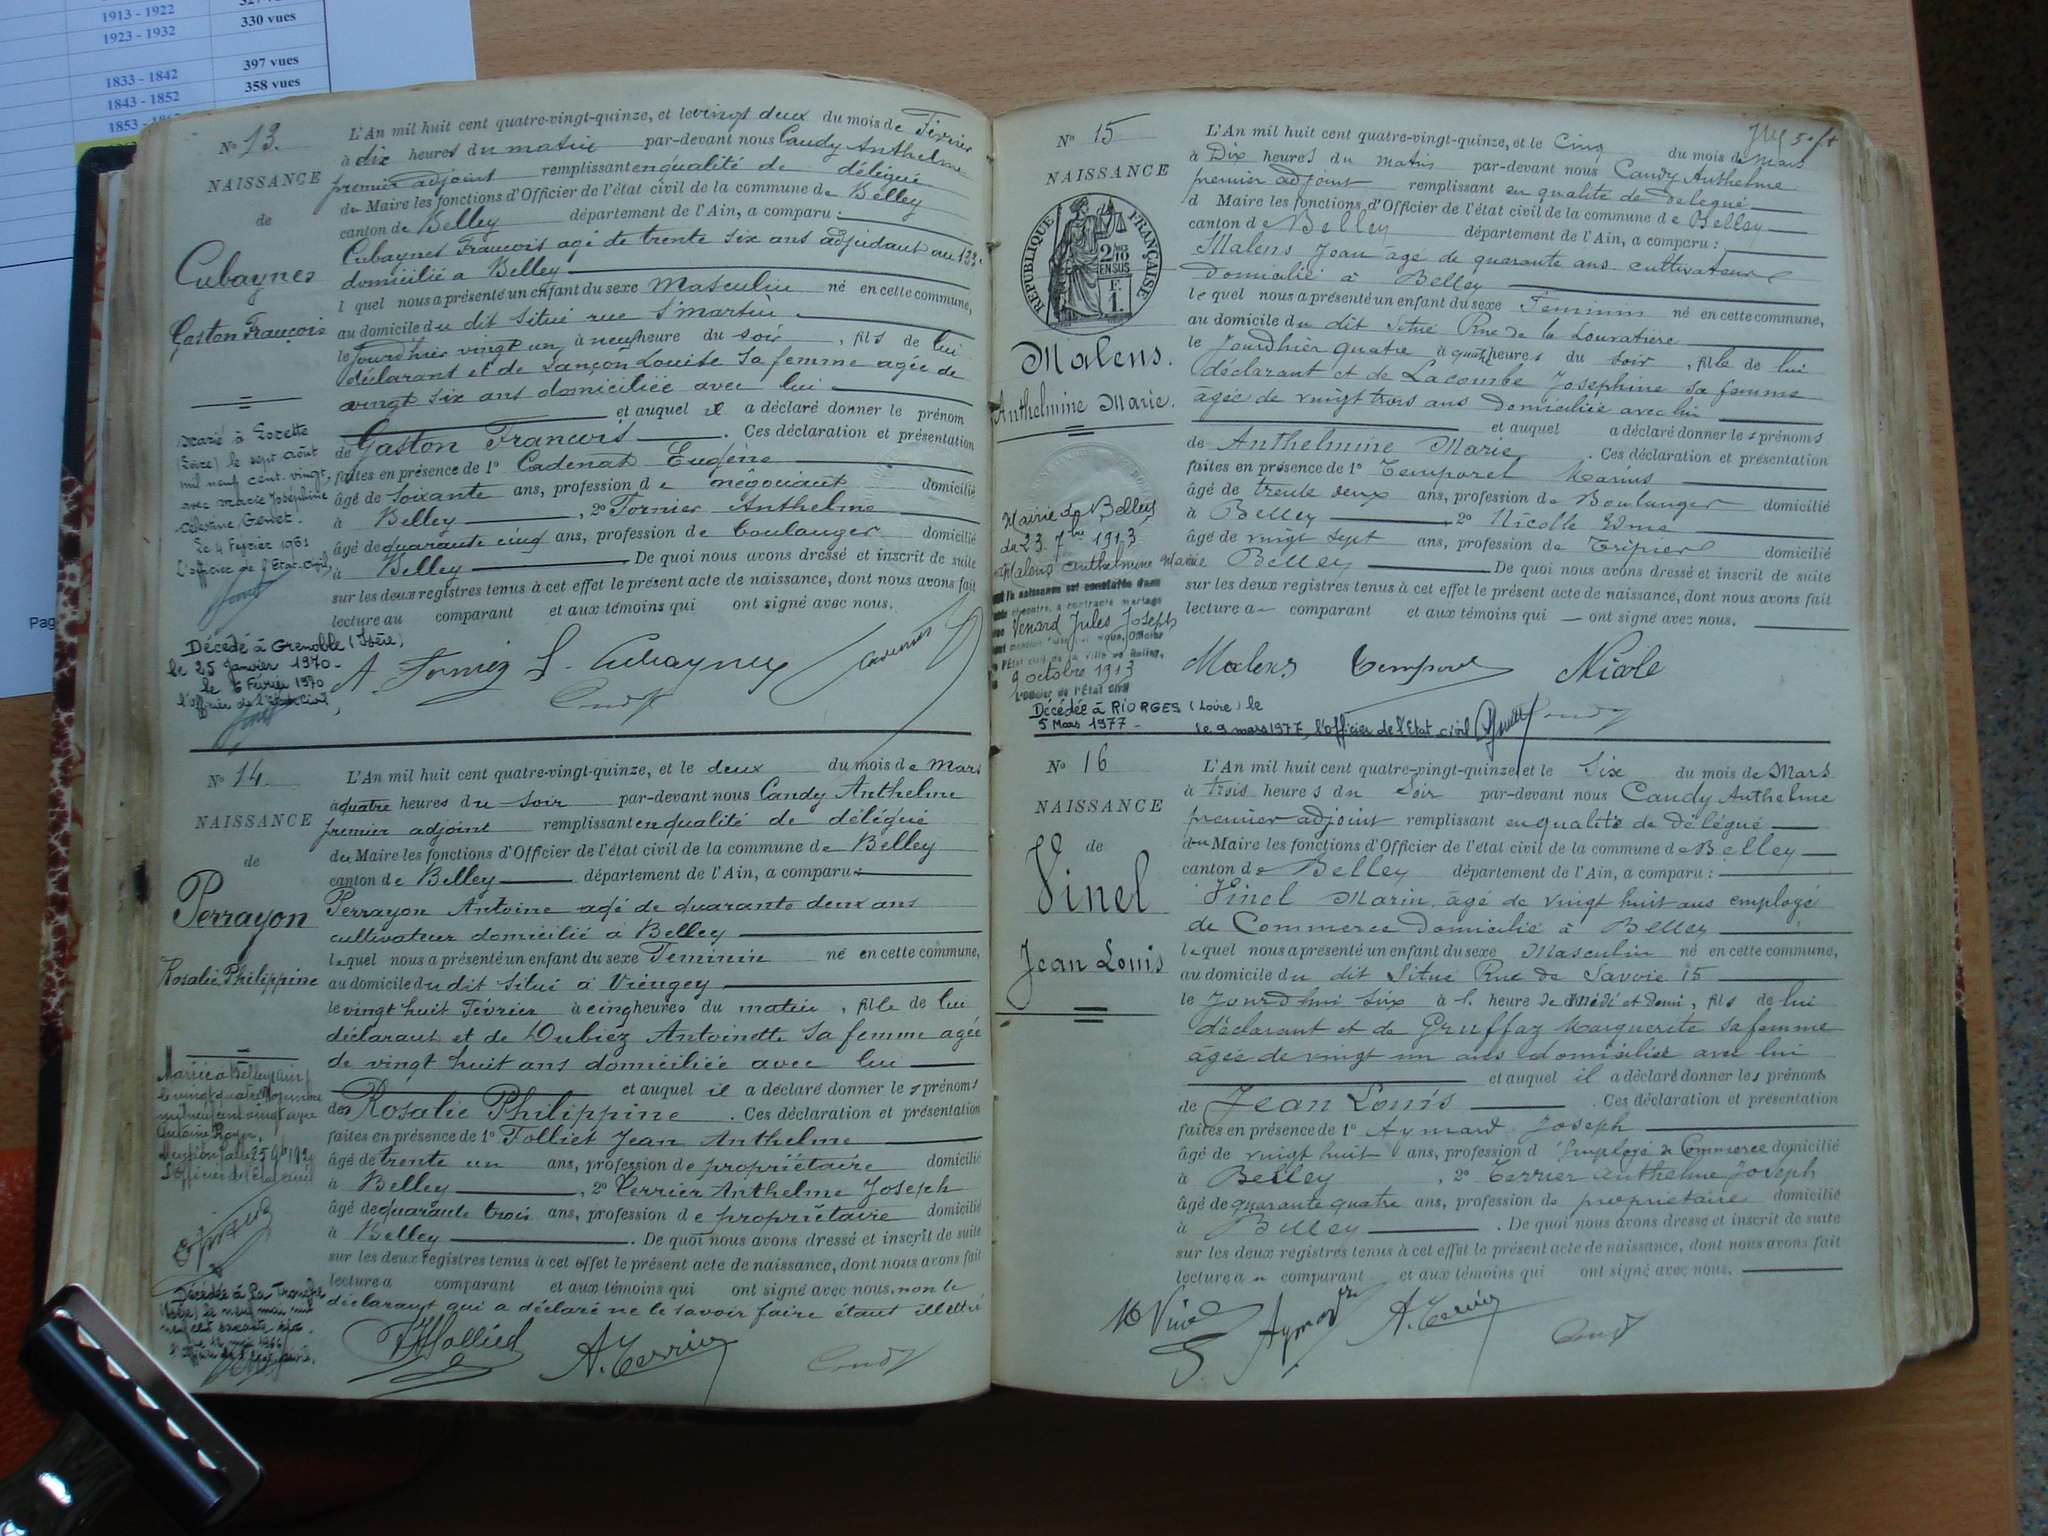 1913 - 1922
1923 - 1932
330 vues
1833 - 1842
397 vues
1843 - 1852
358 vues
Pag
N° 13.
NAISSANCE
de
Cubaynes
Gaston François
L'An mil huit cent quatre-vingt-quinze, et le vingt deux du mois de Février
à dix heures du matin par-devant nous Candy Anthelme
premier adjoint remplissant en qualité de délégué
du Maire les fonctions d'Officier de l'état civil de la commune de Belley
canton de Belley département de l'Ain, a comparu :
Cubaynes François agé de trente six ans adjudant au 133e
domicilié a Belley
lequel nous a présenté un enfant du sexe Masculin né en cette commune,
au domicile du dit situé rue St martin
le jourdhier vingt un à neuf heure du soir, fils de lui
déclarant et de Sançon Louise sa femme agée de
vingt six ans domiciliée avec lui
et auquel il a déclaré donner le prénom
de Gaston François. Ces déclaration et présentation
faites en présence de 1° Cadenat Eugène
âgé de soixante ans, profession de négociant domicilié
à Belley, 2° Fornier Anthelme
âgé de quarante cinq ans, profession de boulanger domicilié
à Belley De quoi nous avons dressé et inscrit de suite
sur les deux registres tenus à cet effet le présent acte de naissance, dont nous avons fait
lecture au comparant et aux témoins qui ont signé avec nous.
Marié à Lorette
(Loire) le sept août
mil neuf cent vingt,
avec Marie Joséphine
Célestine Genet.
Le 4 Février 1961
L'officier de l'Etat-Civil,
Décédé à Grenoble (Isère)
le 25 Janvier 1970.
le 6 Février 1970
l'officier de l'état civil,
A. Fornier F. Cubaynes
Candy
N° 14.
NAISSANCE
de
Perrayon
Rosalie Philippine
L'An mil huit cent quatre-vingt-quinze, et le deux du mois de Mars
à quatre heures du soir par-devant nous Candy Anthelme
premier adjoint remplissant en qualité de délégué
du Maire les fonctions d'Officier de l'état civil de la commune de Belley
canton de Belley département de l'Ain, a comparu :
Perrayon Antoine agé de quarante deux ans
cultivateur domicilié a Belley
lequel nous a présenté un enfant du sexe Feminin né en cette commune,
au domicile du dit situé a Vieugey
le vingt huit Février à cinq heures du matin, fille de lui
déclarant et de Dubiez Antoinette sa femme agée
de vingt huit ans domiciliée avec lui
et auquel il a déclaré donner les prénoms
de Rosalie Philippine. Ces déclaration et présentation
faites en présence de 1° Folliet Jean Anthelme
âgé de trente un ans, profession de propriétaire domicilié
à Belley, 2° Terrier Anthelme Joseph
âgé de quarante trois ans, profession de propriétaire domicilié
à Belley. De quoi nous avons dressé et inscrit de suite
sur les deux registres tenus à cet effet le présent acte de naissance, dont nous avons fait
lecture a comparant et aux témoins qui ont signé avec nous. non le
déclarant qui a déclaré ne le savoir faire étant illettré
Mariée à Belley (Ain)
le vingt quatre Novembre
mil neuf cent vingt avec
Antoine Royer.
L'officier de l'état civil
Décédée à La Tronche
(Isère) le neuf mai mil
neuf cent soixante six.
A. Terrier
Candy
N° 15
NAISSANCE
RÉPUBLIQUE FRANÇAISE
2/10
EN SUS
F.
1.
Malens.
Anthelmine Marie.
L'An mil huit cent quatre-vingt-quinze, et le Cinq du mois de Mars
à Dix heures du matin par-devant nous Candy Anthelme
premier adjoint remplissant en qualité de délégué
d Maire les fonctions d'Officier de l'état civil de la commune de Belley
canton de Belley département de l'Ain, a comparu :
Malens Jean âge de quarante ans cultivateur
Domicilié à Belley
lequel nous a présenté un enfant du sexe Feminin né en cette commune,
au domicile du dit situé Rue de la Louvatière
le Jourdhier quatre à quatre heures du soir, fille de lui
déclarant et de Lacombe Josephine sa femme
âgée de vingt trois ans domiciliée avec lui
et auquel a déclaré donner les prénoms
de Anthelmine Marie. Ces déclaration et présentation
faites en présence de 1° Temporel Marius
âgé de trente deux ans, profession de Boulanger domicilié
à Belley 2° Nicolle Edme
âgé de vingt sept ans, profession de Tripier domicilié
à Belley De quoi nous avons dressé et inscrit de suite
sur les deux registres tenus à cet effet le présent acte de naissance, dont nous avons fait
lecture a comparant et aux témoins qui ont signé avec nous.
Mairie de Belley
du 23 7bre 1913
Malens Anthelmine Marie
dont la naissance est constatée dans
ci-contre, a contracté mariage
Venard Jules Joseph
l'État civil de la Ville de Belley,
9 octobre 1913
L'Officier de l'État Civil
Malens Temporel Nicole
Décédée à RIORGES (Loire) le
5 Mars 1977 -
le 9 mars 1977, l'officier de l'Etat-civil
Candy
N° 16
NAISSANCE
de
Vinel
Jean Louis
L'An mil huit cent quatre-vingt-quinze, et le Six du mois de Mars
à trois heures du Soir par-devant nous Candy Anthelme
premier adjoint remplissant en qualité de Délégué
du Maire les fonctions d'Officier de l'état civil de la commune de Belley
canton de Belley département de l'Ain, a comparu :
Vinel Marin, âgé de vingt huit ans employé
de Commerce Domicilié à Belley
lequel nous a présenté un enfant du sexe Masculin né en cette commune,
au domicile du dit Situé Rue de Savoie 15
le Jourdhui Six à l. heure de midi et demi, fils de lui
déclarant et de Gruffaz Marguerite sa femme
âgée de vingt un ans domiciliée avec lui
et auquel il a déclaré donner les prénoms
de Jean Louis. Ces déclaration et présentation
faites en présence de 1° Aymard Joseph
âgé de vingt huit ans, profession d'Employé de Commerce domicilié
à Belley, 2° Terrier Anthelme Joseph
âgé de quarante quatre ans, profession de proprietaire domicilié
à Belley. De quoi nous avons dressé et inscrit de suite
sur les deux registres tenus à cet effet le présent acte de naissance, dont nous avons fait
lecture au comparant et aux témoins qui ont signé avec nous.
M Vinel Aymard A. Terrier Candy